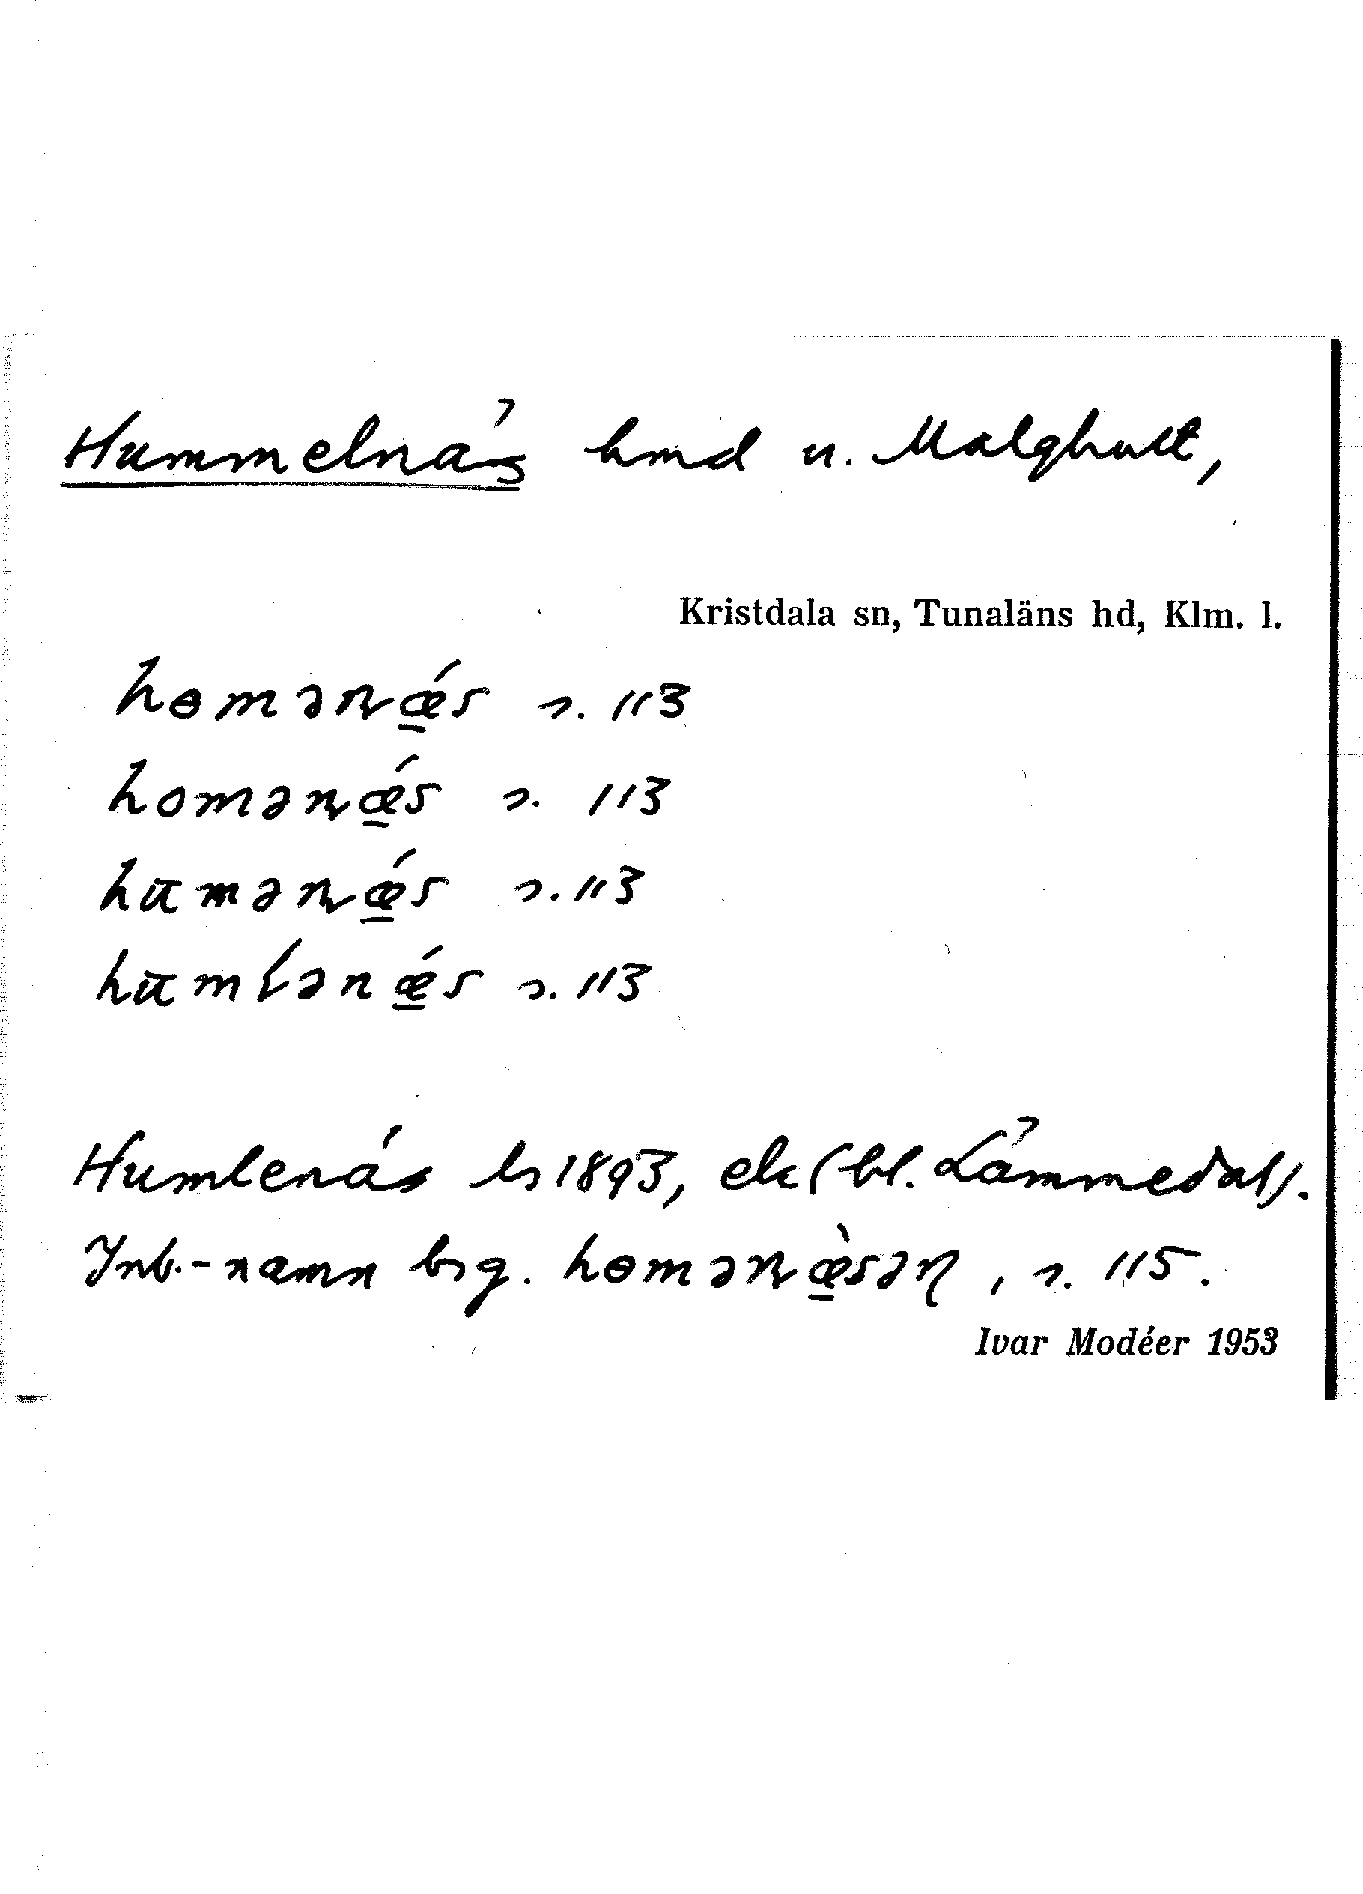 Hummelnäs hmd u. Malghult,
Kristdala sn, Tunaläns hd, Klm. l.
hɵmənǽs s. 113
homənǽs s. 113
humənǽs s. 113
humlənǽs s. 113
Humlenäs hs 1893, ek (bl. Lämmedal).
Inb.-namn brg. hɵmənæ̀səɳ, s. 115.
Ivar Modéer 1953